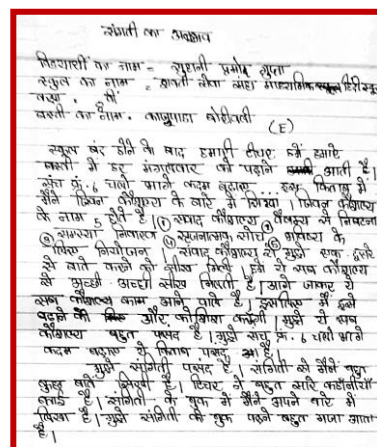 संगती का अनुभव
विद्यार्थी का नाम = सुहानी प्रमोद गुप्ता
स्कूल का नाम = शक्ती सेवा संघ माध्यमिक स्कूल हिंदी स्कूल
कक्षा .
बस्ती का नाम . काजुपाडा बोरीवली
(E)
स्कूल बंद होने के बाद हमारी टीचर हमें हमारे
बस्ती में हर मंगलवार को पढ़ाने आती है।
संच क्रं. 6 चलो आगे कदम बढ़ाए ... इस किताब में
मैंने जिवन कौशल्य के बारे में सिखा। जिवन कौशल्य
के नाम 5 होते है। ① संवाद कौशल्य ② से निपटना
③ समस्या निवारण ④ सृजनात्मक सोच ⑤ भविष्य के
लिए नियोजन। संवाद कौशल्य से मुझे एक दुसरे
से बाते करने को सीख मिले। हमे ये सब कौशल्य
से अच्छी अच्छी सीख मिलती है। आगे जाकर ये
सब कौशल्य काम आने वाले है। इसलिए मैं इसे
बढ़ाने की और कोशिश करुँगी। मुझे ये सब
कौशल्य बहुत पसंद है। मुझे संच क्रं. 6 चलो आगे
कदम बढ़ाए ये किताब पसंद आ है।
मुझे संगिती पसंद है। संगिती से मैंने बहुत
कुछ बाते सिखी है। टिचर ने बहुत सारे
है। संगिती के बुक में मैंने अपने बारे में
लिखा है। मुझे संगिती की बुक पढ़ने बहुत मजा आता
है।